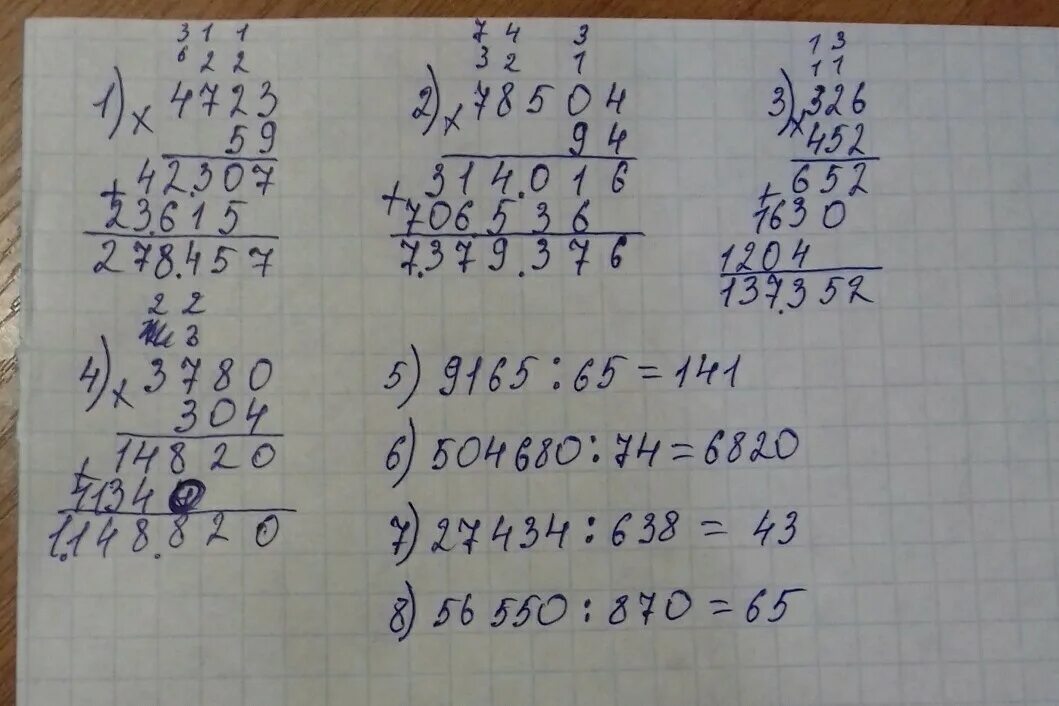 3 1 1
6 2 2
1) × 4723
59
+ 42.307
23.615
278.457
7 4 3
3 2 1
2) × 78504
94
+ 314.016
706.536
7.379.376
1 3
1 1
3) × 326
452
+ 652
1630
1204
137.352
2 2
3
4) × 3780
304
+ 14820
1134
1.148.820
5) 9165 : 65 = 141
6) 504680 : 74 = 6820
7) 27434 : 638 = 43
8) 56550 : 870 = 65